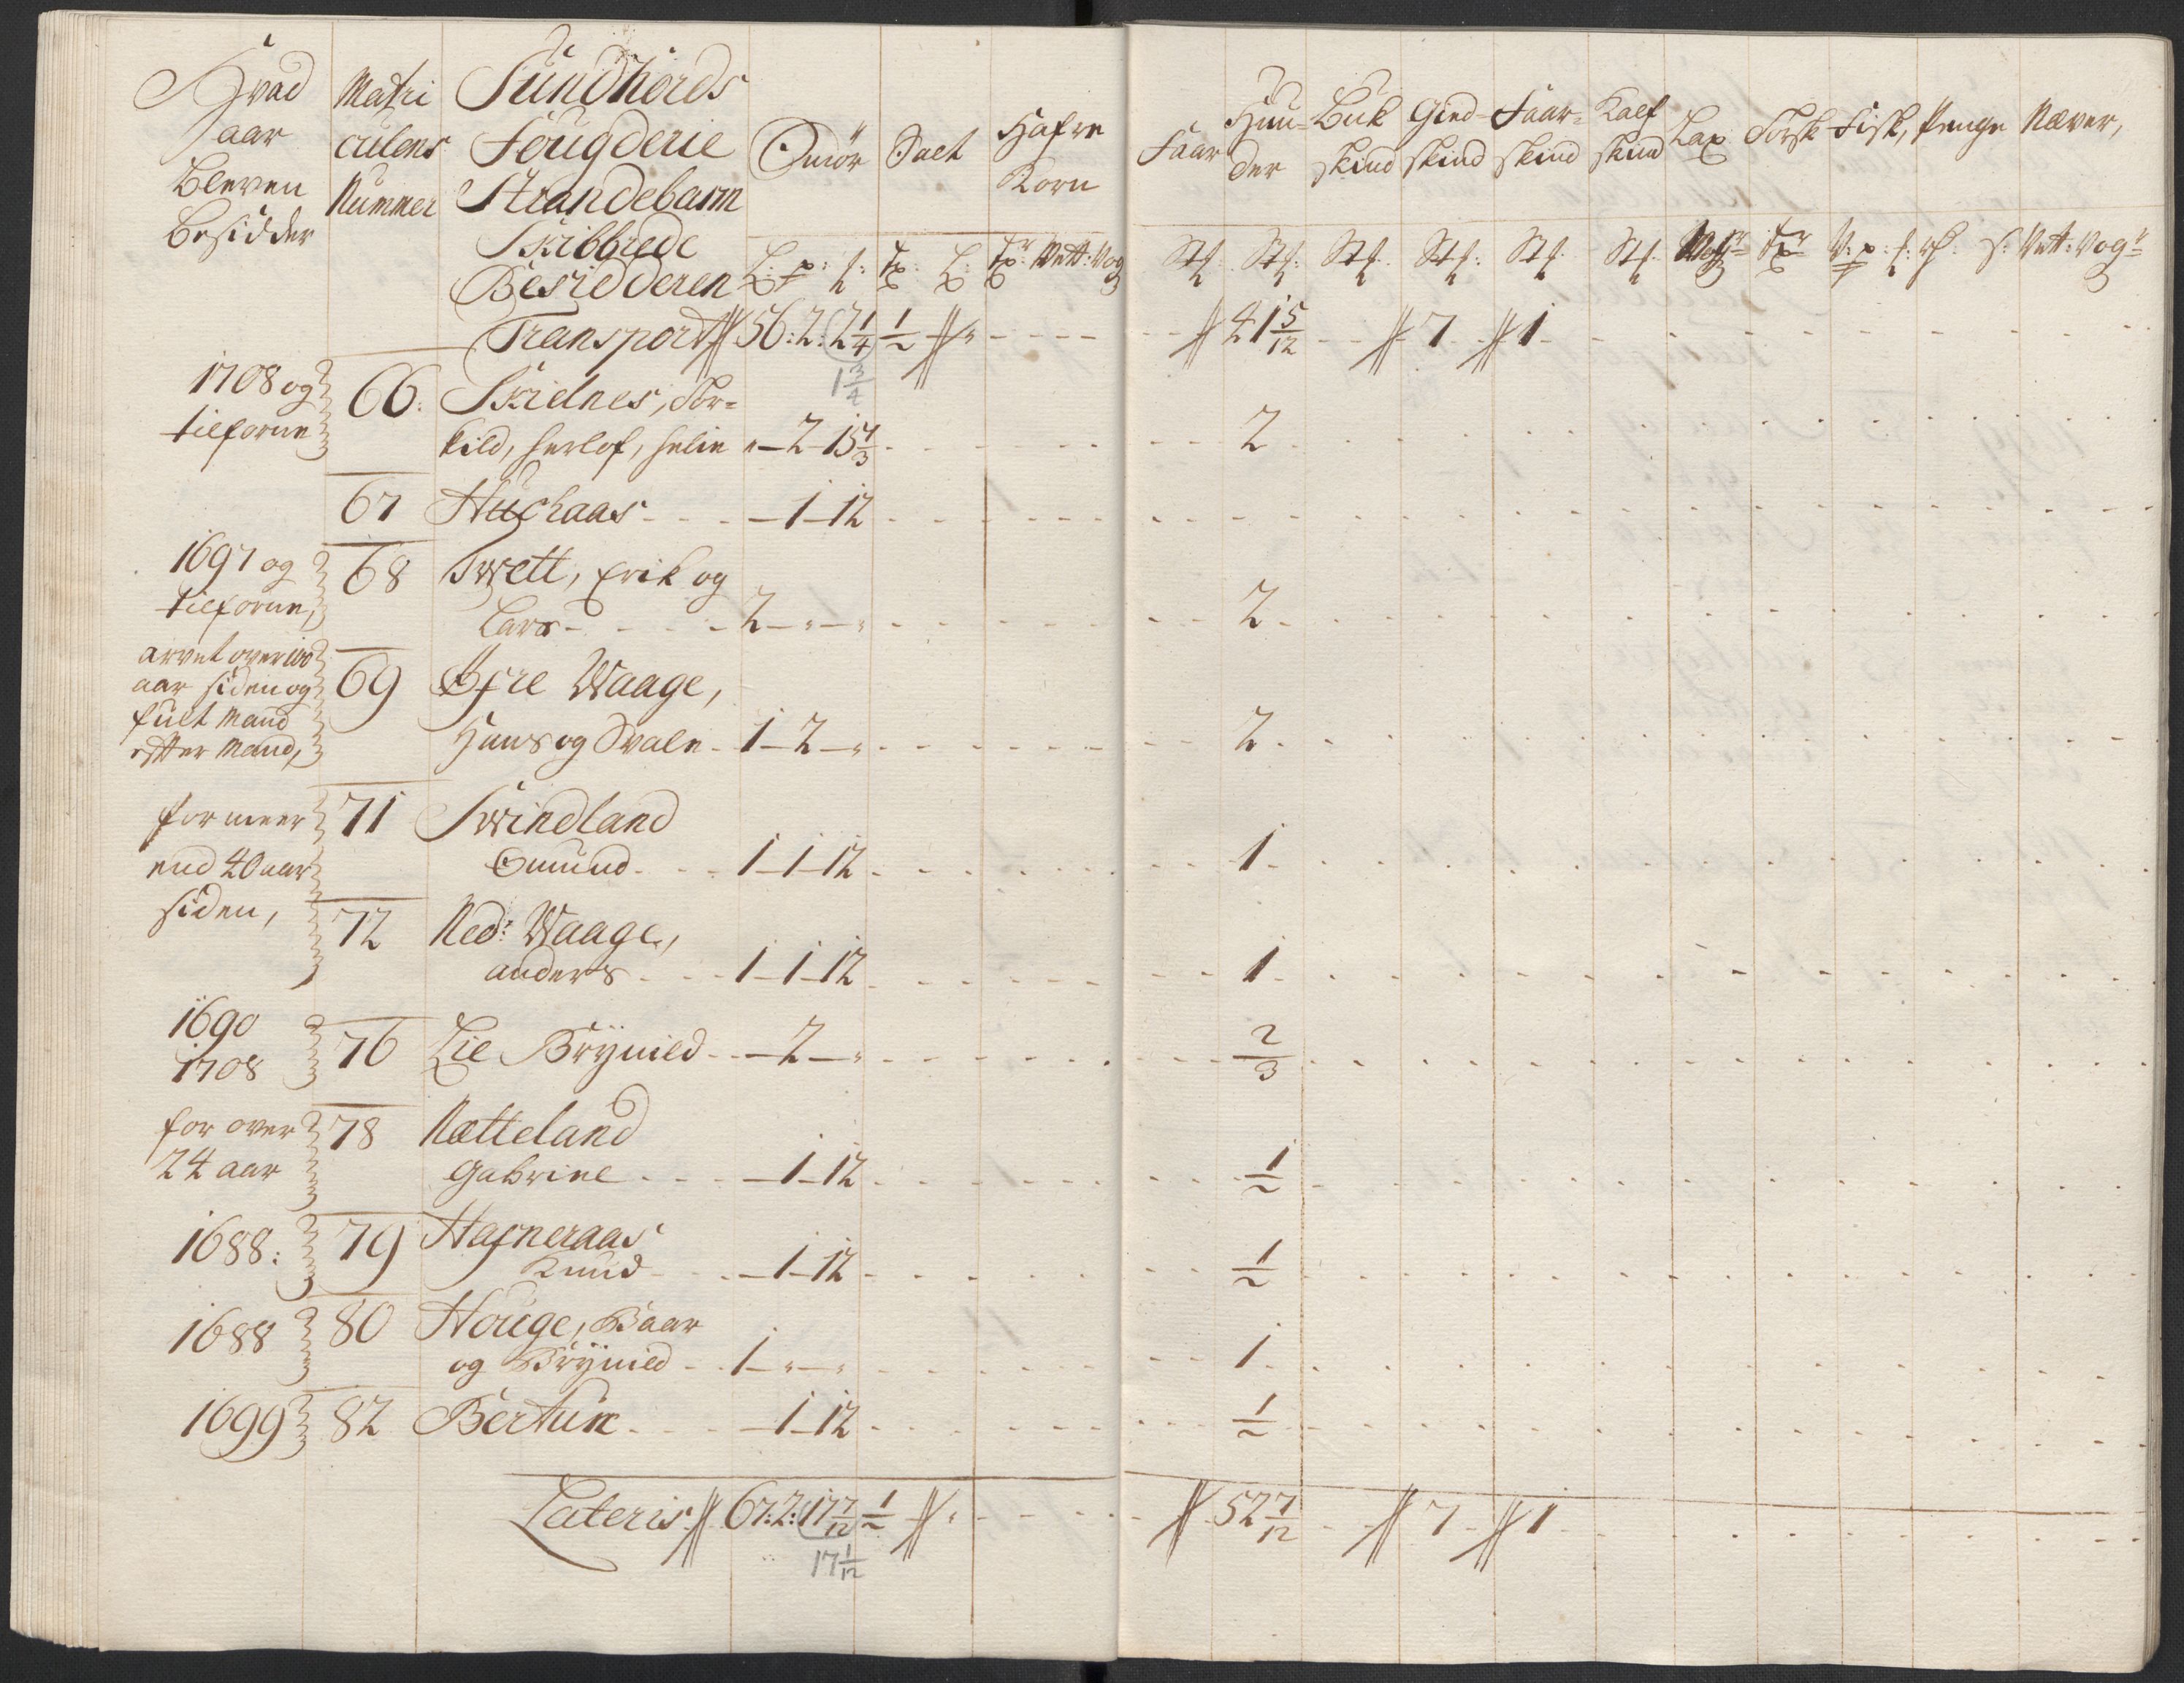 Hvad
aar
bleven
besidder
Matri
culens
Nummer
Sundhords
Fougderie
Strandebarm
Skibbrede
Besidderen
Smör
Salt
Hafre
Korn
Faar
Huu-
der
Buk
skind
Gied
skind
Faar-
skind
Kalf
skind
Lax
Torsk
Fisk,
Penge
Næver,
Transport 56:2:2 1/4 1/2 " - - - - 41 5/12 - - 7 - 1
1 3/4
1708 og
tilforne
66: Skielnes, Tor-
kild, herlof, helie " - 2 - 15 1/3 2
67 Huchaas - - - 1 - 12
1697 og
tilforne,
68 Twett, Erik og
Lars - - - 2 - " - " 2
arvet over 100
aar siden og
fult Mand
efter Mand,
69 Øfre Waage,
Hans og Svale - 1 - 2 - " 2
for meer
end 40 aar
siden,
71 Swindland
Omund - - 1 - 1 - 12 1
72 Ned: Waage,
anders - - - 1 - 1 - 12 1
1690
1708
76 Lie Brynild - - 2 - " 2/3
for over
24 aar
78 Nætteland
Gabriel - - - 1 - 12 1/2
1688: 79 Hafneraas
Knud - - - 1 - 12 1/2
1688 80 Houge, Baar
og Brynild - - 1 - " - " 1
1699 82 Bertun - - - 1 - 12 1/2
Lateris 67:2:17 7/12 1/2 " - - - - 52 7/12 - - 7 - 1
17 1/12